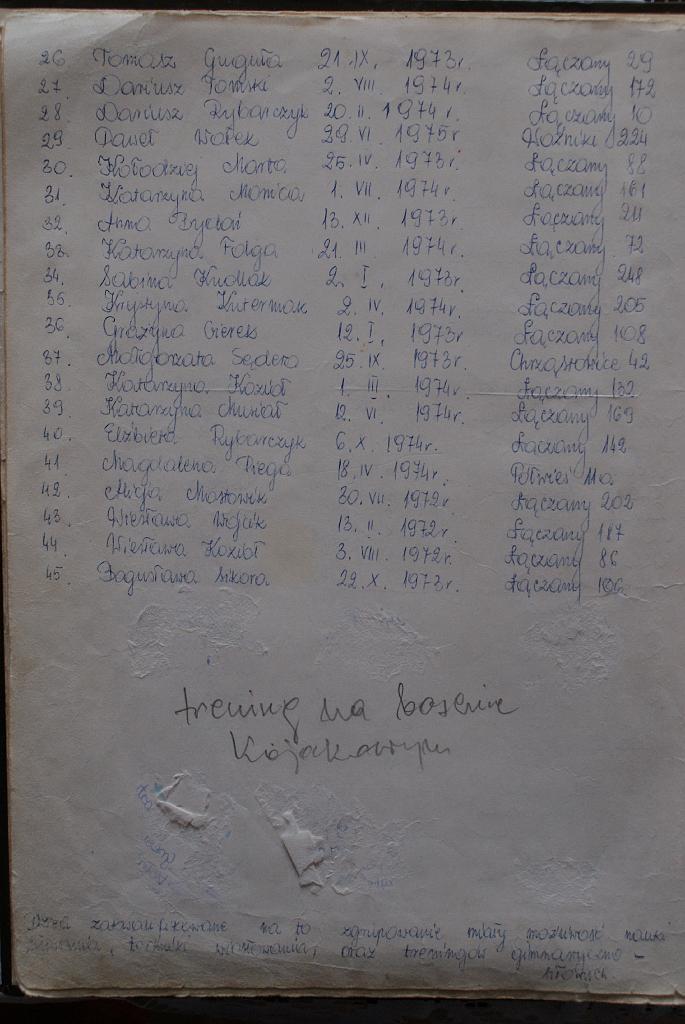 26 Tomasz Guguła 21. IX. 1973r. Łączany 29
27. Dariusz Tomski 2. VIII. 1974r. Łączany 172
28. Dariusz Rybarczyk 20. II. 1974r. Łączany 10
29. Paweł Wołek 29. VI 1975r Woźniki 224
30. Kołodziej Marta 25. IV. 1973r. Łączany 88
31. Katarzyna 1. VII. 1974r. Łączany 161
32. Anna 13. XII. 1973r. Łączany 211
33. Katarzyna Fołga 21. III 1974r. Łączany 72
34. Sabina 2. I. 1973r Łączany 248
35. Krystyna Kuternak 2. IV. 1974r. Łączany 205
36. Grażyna Gierek 12. I. 1973r Łączany 108
37. Małgorzata Sędera 25. IX 1973r. Chrząstowice 42
38. Katarzyna Kozioł 1. III. 1974r. Łączany 132
39. Katarzyna 12. VI 1974r. Łączany 169
40. Elżbieta Rybarczyk 6. X. 1974r. Łączany 142
41. Magdalena 18. IV. 1974r. Półwieś 11a
42. 30. VII. 1972r Łączany 202
43. Wiesława Wójcik 13. II. 1972r. Łączany 187
44. Wiesława Kozioł 3. VIII. 1972r. Łączany 86
45. Bogusława Sikora 22. X. 1973r. Łączany 106
trening na basenie
Kajakowym
zakwalifikowane na to zgrupowanie miały możliwość nauki
pływania, techniki wiosłowania, oraz treningów gimnastyczno -
siłowych.